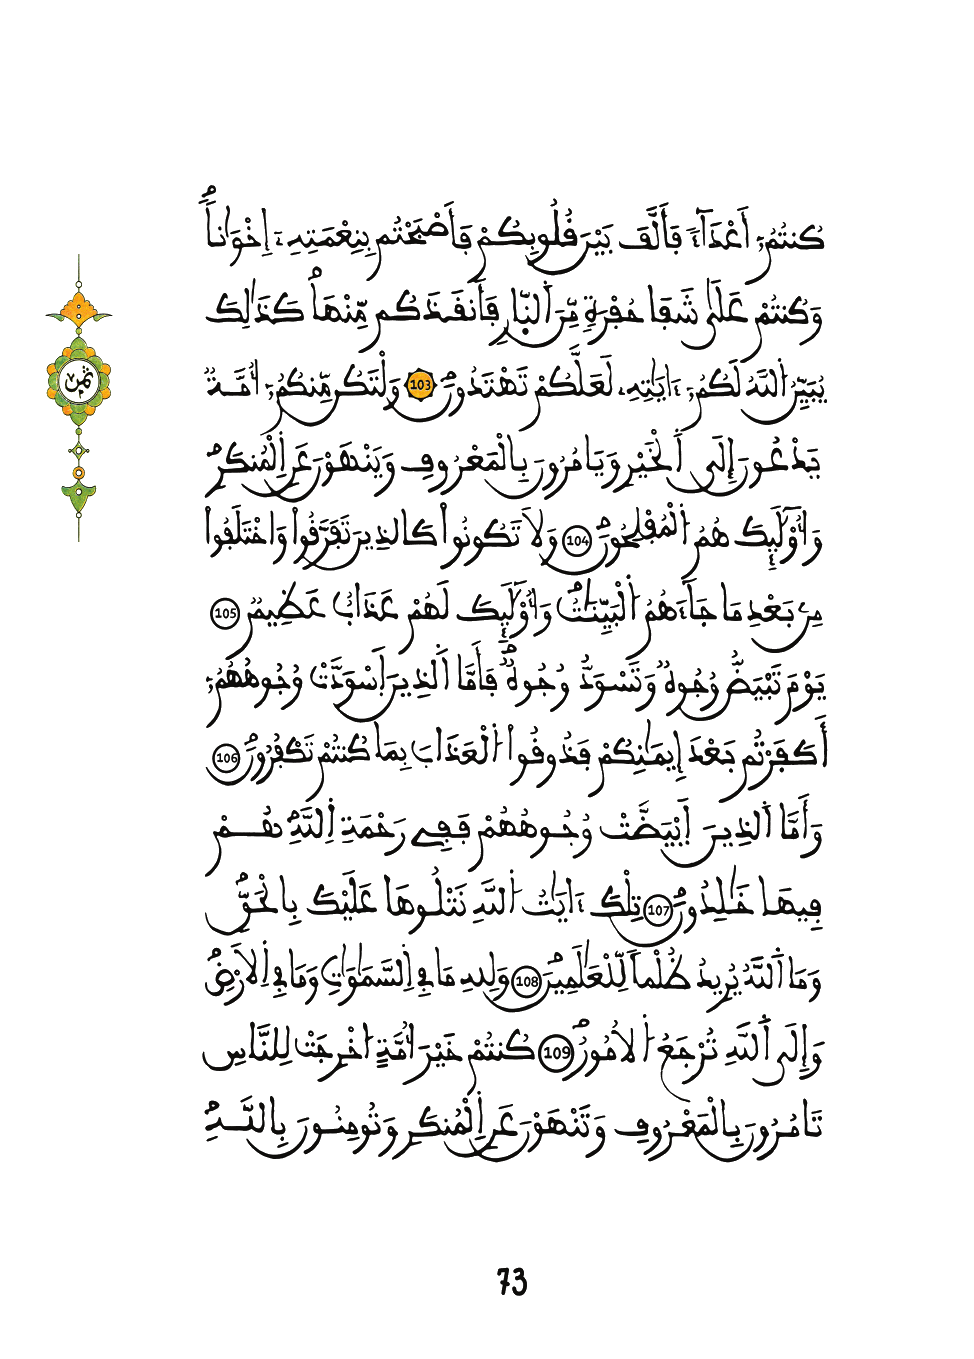 كُنتُمُۥٓ أَعْدَآءٗ فَأَلَّفَ بَيْنَ قُلُوبِكُمْ فَأَصْبَحْتُم بِنِعْمَتِهِۦٓ إِخْوَٰناٗۖ
وَكُنتُمْ عَلَىٰ شَفَا حُفْرَةٖ مِّنَ اَ۬لنّ۪ارِ فَأَنقَذَكُم مِّنْهَاۖ كَذَٰلِكَ
يُبَيِّنُ اُ۬للَّهُ لَكُمُۥٓ ءَايَٰتِهِۦ لَعَلَّكُمْ تَهْتَدُونَۖ 103 وَلْتَكُن مِّنكُمُۥٓ أُمَّةٞ
يَدْعُونَ إِلَى اَ۬لْخَيْرِ وَيَامُرُونَ بِالْمَعْرُوفِ وَيَنْهَوْنَ عَنِ اِ۬لْمُنكَرِۖ
وَأُوْلَٰٓئِكَ هُمُ اُ۬لْمُفْلِحُونَۖ 104 وَلَا تَكُونُواْ كَالذِينَ تَفَرَّقُواْ وَاخْتَلَفُواْ
مِنۢ بَعْدِ مَا جَآءَهُمُ اُ۬لْبَيِّنَٰتُۖ وَأُوْلَٰٓئِكَ لَهُمْ عَذَابٌ عَظِيمٞ 105
يَوْمَ تَبْيَضُّ وُجُوهٞ وَتَسْوَدُّ وُجُوهٞۖ فَأَمَّا اَ۬لذِينَ اَ۪سْوَدَّتْ وُجُوهُهُمُۥٓ
أَكَفَرْتُم بَعْدَ إِيمَٰنِكُمْ فَذُوقُواْ اُ۬لْعَذَابَ بِمَا كُنتُمْ تَكْفُرُونَۖ 106
وَأَمَّا اَ۬لذِينَ اَ۪بْيَضَّتْ وُجُوهُهُمْ فَفِے رَحْمَةِ اِ۬للَّهِۖ هُمْ
فِيهَا خَٰلِدُونَۖ 107 تِلْكَ ءَايَٰتُ اُ۬للَّهِ نَتْلُوهَا عَلَيْكَ بِالْحَقِّۖ
وَمَا اَ۬للَّهُ يُرِيدُ ظُلْماٗ لِّلْعَٰلَمِينَۖ 108 وَلِلهِ مَا فِے اِ۬لسَّمَٰوَٰتِ وَمَا فِے اِ۬لَارْضِۖ
وَإِلَى اَ۬للَّهِ تُرْجَعُ اُ۬لُامُورُۖ 109 كُنتُمْ خَيْرَ أُمَّةٍ اُ۬خْرِجَتْ لِلنَّاسِ
تَامُرُونَ بِالْمَعْرُوفِ وَتَنْهَوْنَ عَنِ اِ۬لْمُنكَرِ وَتُومِنُونَ بِاللَّهِۖ
ثمن
73